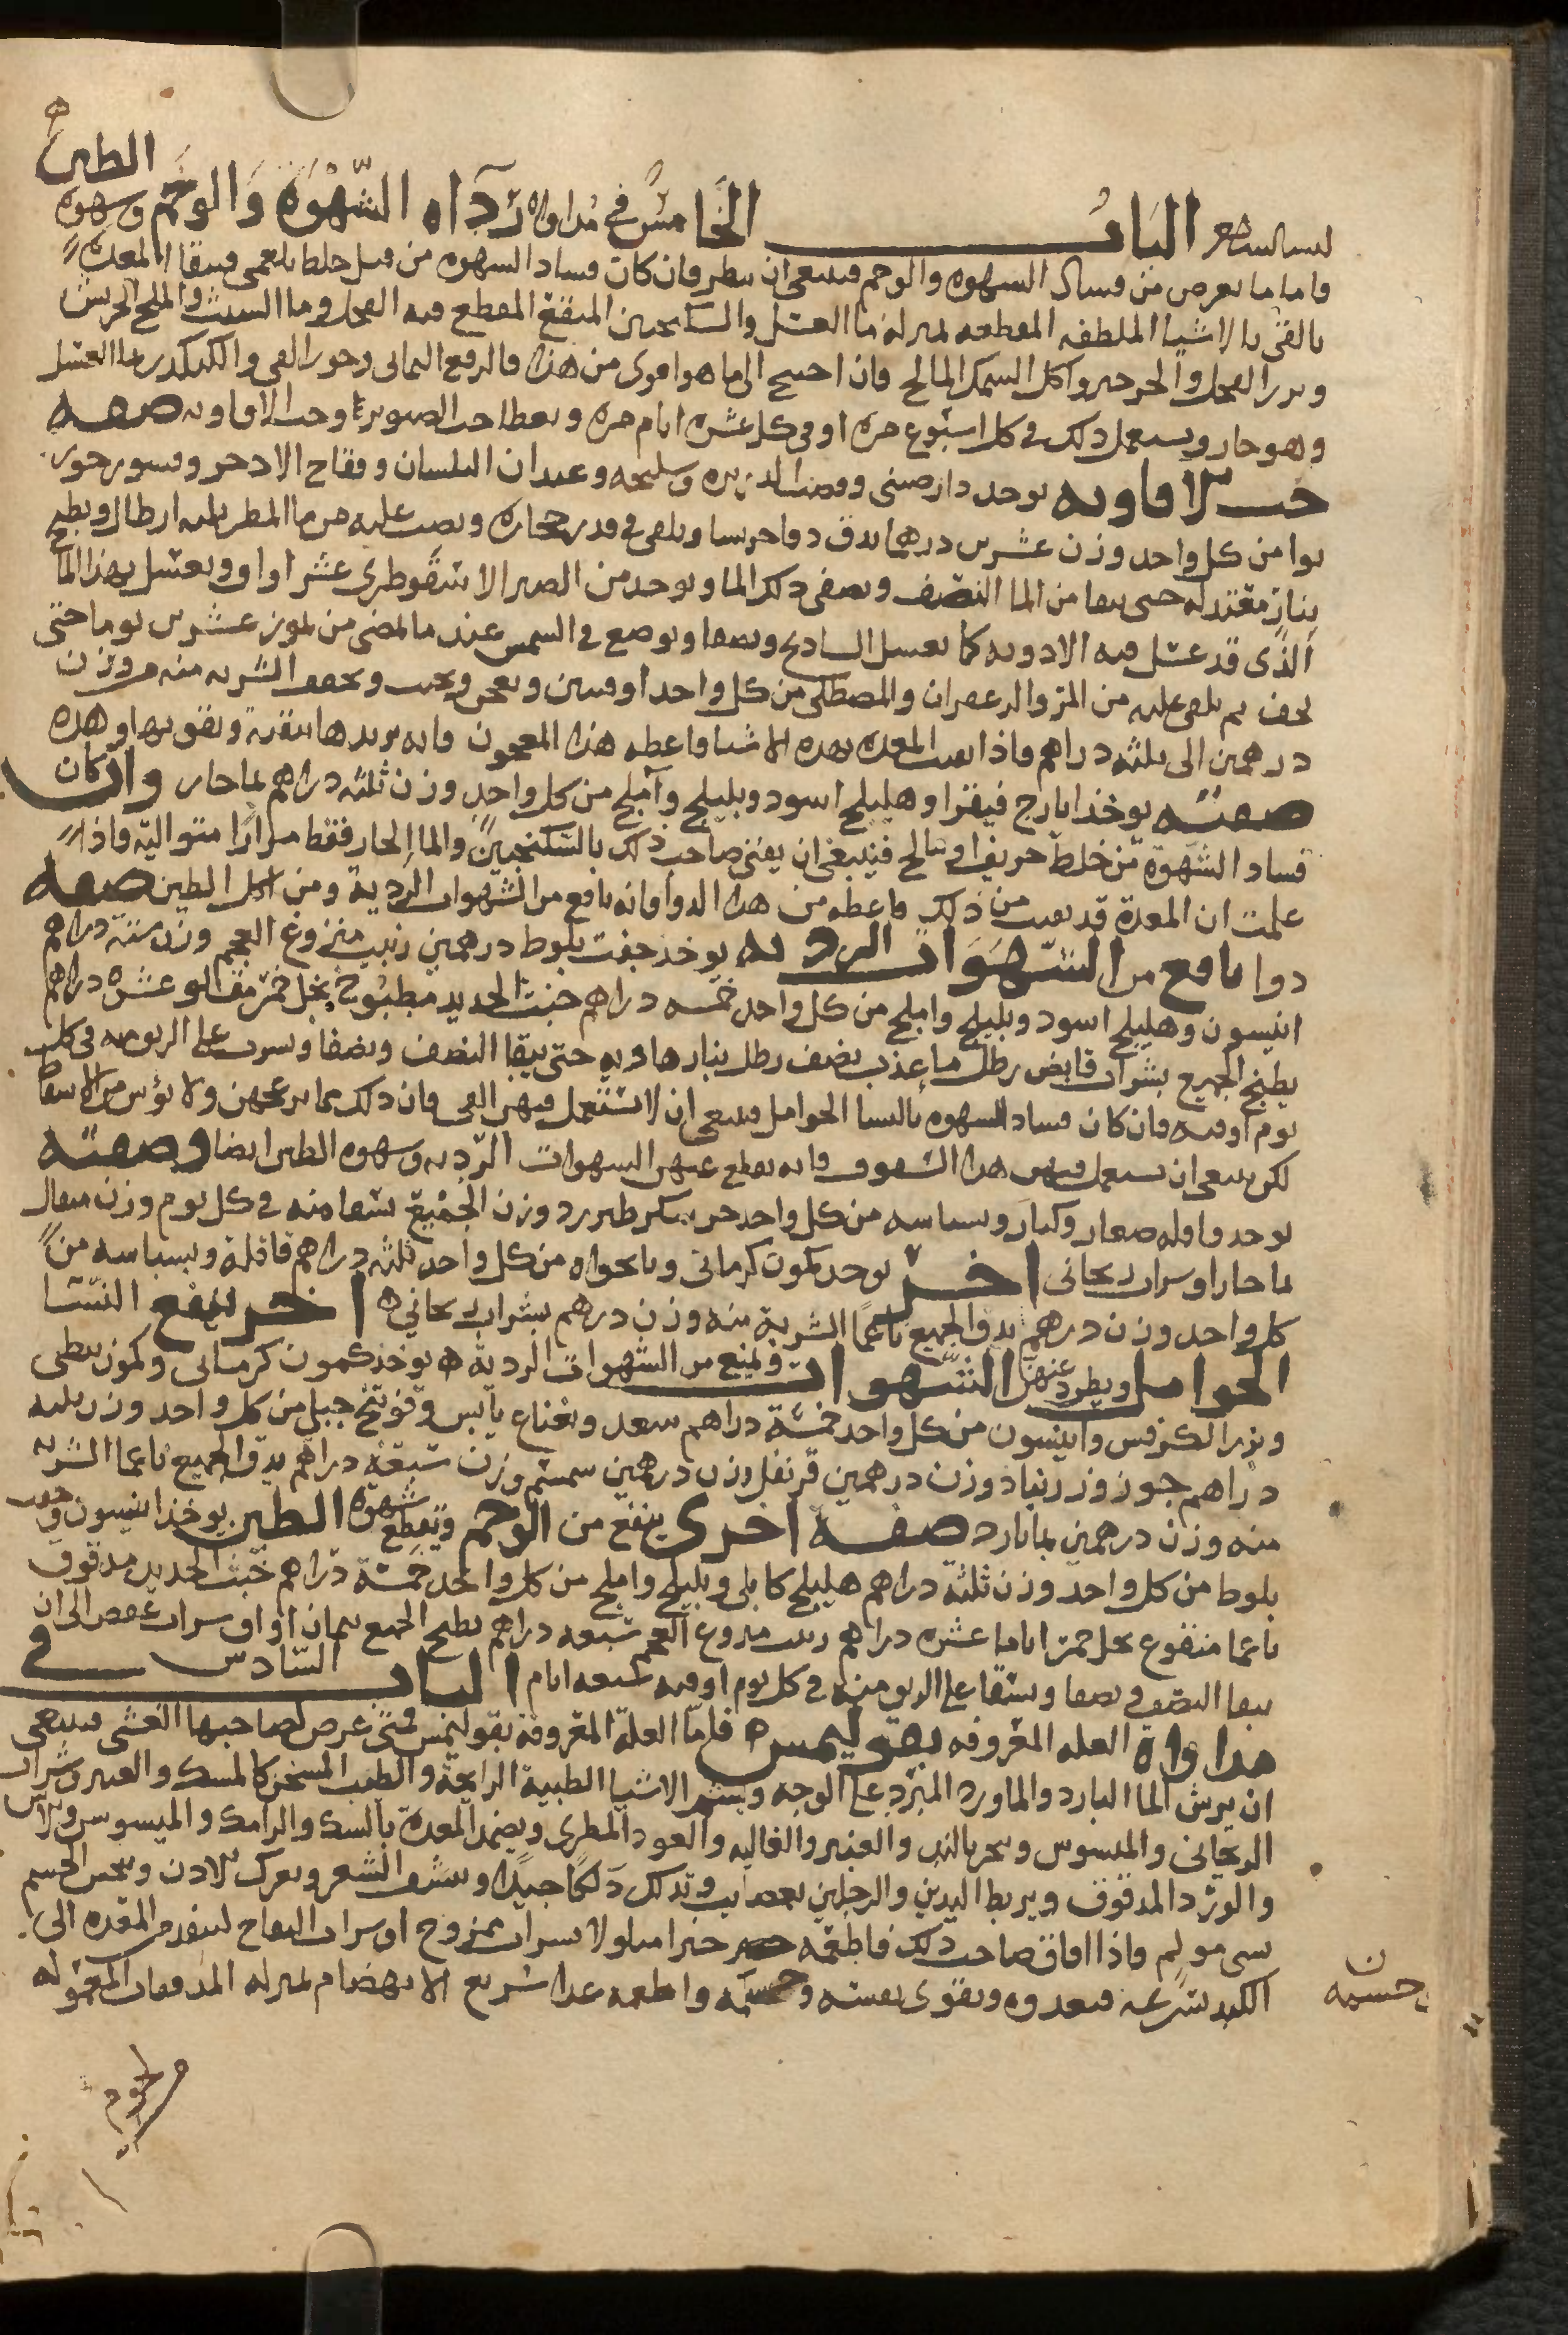 الباب الخامس في مداواة رداة الشهوة والوحم وشهوة الطين
فاما ما يعرض من فساد الشهوة والوحم فينبغي ان ينظر فان كان فساد الشهوة من قبل خلط بلغمي فينقا المعدة
بالقى بالاشيا الملطفه المقطعه بمنزلة ما العسل والسكنجبين المنقع المقطع فيه الفجل وما الشبث والملح الجريش
وبزر الفجل والجرجير واكل السمك المالح فان احتيج الى ما هو اقوى من هذا فالرقع اليمانى وجوز القى والكنكدر بما العسل
وهو حار ويستعمل ذلك في كل اسبوع مرة او في كل عشرة ايام مرة ويعطا حب الصبر او حب الافاويه صفه
حب الافاويه يوخذ دارصينى وقصب الذريره وسليخه وعيدان البلسان وفقاح الاذخر وقشور جوز
بوا من كل واحد وزن عشرين درهما يدق دقا جريشا ويلقى في قدر حجاره ويصب عليه من ما المطر ثلثه ارطال ويطبخ
بنار معتدله حتى يبقا من الما النصف ويصفى ذلك الما ويوخذ من الصبر الاسقوطرى عشر اواق ويغسل بهذا الما
الذي قد غسل فيه الادويه كما يغسل السادنج ويصفا ويوضع في الشمس عند ما يمضى من تموز عشرين يوما حتى
يجف ثم يلقى عليه من المر والزعفران والمصطكى من كل واحد اوقيتين ويعجن ويحبب ويجفف الشربه منه من وزن
درهمين الى ثلثه دراهم فاذا نقيت المعدة بهذه الاشيا فاعطه هذا المعجون فانه يزيدها تنقية وتقويها وهذه
صفته يوخذ ايارج فيقرا وهليلج اسود وبليلج وآملج من كل واحد وزن ثلثه دراهم بما حار وان كان
فساد الشهوة من خلط حريف او مالح فينبغي ان يقى صاحب ذلك بالسكنجبين والما الحار فقط مرارا متوالية فاذا
علمت ان المعدة قد نقيت من ذلك فاعطه من هذا الدوا فانه نافع من الشهوات الردية ومن اكل الطين صفه
دوا نافع من الشهوات الرديه يوخذ جفت بلوط درهمين زبيب منزوع العجم وزن ستة دراهم
انيسون وهليلج اسود وبليلج واملج من كل واحد خمسه دراهم خبث الحديد مطبوخ بخل خمر مقلو عشرة دراهم
يطبخ الجميع بشراب قابض رطل ما عذب نصف رطل بنار هاديه حتى يبقا النصف ويصفا ويشرب على الريق منه في كل
يوم اوقيه فان كان فساد الشهوة بالنسا الحوامل فينبغي ان لا تستعمل فيهن القى فان ذلك مما يزعجهن ولا يؤمن من الاسقاط
لكن ينبغي ان يستعمل فيهن هذا السفوف فانه يقطع عنهن الشهوات الرديه وشهوة الطين ايضا وصفته
يوخذ قاقله صغار وكبار وبسباسه من كل واحد جز سكر طبرزد وزن الجميع يسقا منه في كل يوم وزن مثقال
بما حار او شراب ريحانى اخر يوخذ كمون كرمانى ونانخواه من كل واحد ثلثه دراهم قاقلة وبسباسه من
كل واحد وزن درهم يدق الجميع ناعما الشربة منه وزن درهم بشراب ريحاني اخر ينفع النسا
الحوامل ويطرد عنهن الشهوات ويمنع من الشهوات الردية يوخذ كمون كرمانى وكمون نبطى
وبزر الكرفس وانيسون من كل واحد خمسة دراهم سعد ونعناع يابس وفوتنج جبلي من كل واحد وزن ثلثه
دراهم جوز وزرنباد وزن درهمين قرنفل وزن درهمين سمسم وزن سبعة دراهم يدق الجميع ناعما الشربه
منه وزن درهمين بما بارد صفة اخرى ينفع من الوحم وتقطع شهوة الطين يوخذ انيسون وجفت
بلوط من كل واحد وزن ثلثة دراهم هليلج كابلى وبليلج واملج من كل واحد خمسة دراهم خبث الحديد مدقوق
ناعما منقوع بخل خمر اياما عشره دراهم زبيب منزوع العجم سبعه دراهم يطبخ الجميع بثمان اواق شراب عفص الى ان
يبقا النصف ويصفا ويسقا على الريق منه في كل يوم اوقيه سبعه ايام الباب السادس في
مداواة العله المعروفه بقوليمس فاما العلة المعروفة بقوليمس فمتى عرض لصاحبها الغشى فينبغى
ان يرش الما البارد والماورد المبرد على الوجه ويشم الاشيا الطيبة الرايحة والطيب المسخن كالمسك والعنبر وشراب
الريحانى والميسوس ويبخر بالند والعنبر والغاليه والعود المطرى ويضمد المعدة بالسك والرامك والميسوس والاس
والورد المدقوق ويربط اليدين والرجلين بعصايب وتدلك دلكا جيدا وينتف الشعر ويعرك الاذن وينخس الجسم
بشى مولم فاذا افاق صاحب ذلك فاطعمه خبزا مبلولا بشراب ممزوج او شراب التفاح لينفد من المعده الى
الكبد بسرعه فيغدوه ويقوى نفسه وجسمه واطعمه غذا سريع الانهضام بمنزله المدققات المعموله
جسمه